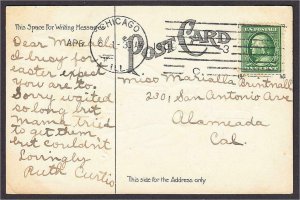 This Space For Writing Messages
Dear Mariallas
busy for
easter expect
you are to.
Sorry waited
so long but
Mama tried
to get them
but couldn't
Lovingly
Ruth Curtis
CHICAGO
APR
ILL
POST CARD
3
U.S. POSTAGE
Miss Marialla
2301 San Antonio Ave
Alameada
Cal.
This side for the Address only